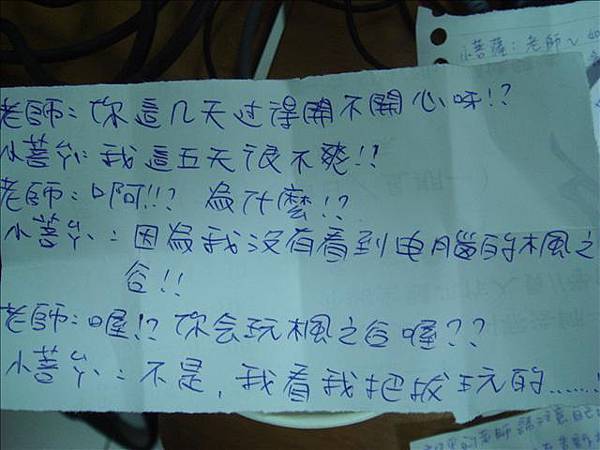 小菩薩：老師～
老師：你這几天过得開不開心呀!?
小菩丫：我這五天很不爽!!
老師：啊!!? 為什麼!?
小菩丫：因為我沒有看到电腦的楓之
谷!!
老師：喔!? 你会玩楓之谷喔??
小菩丫：不是，我看我把拔玩的......!